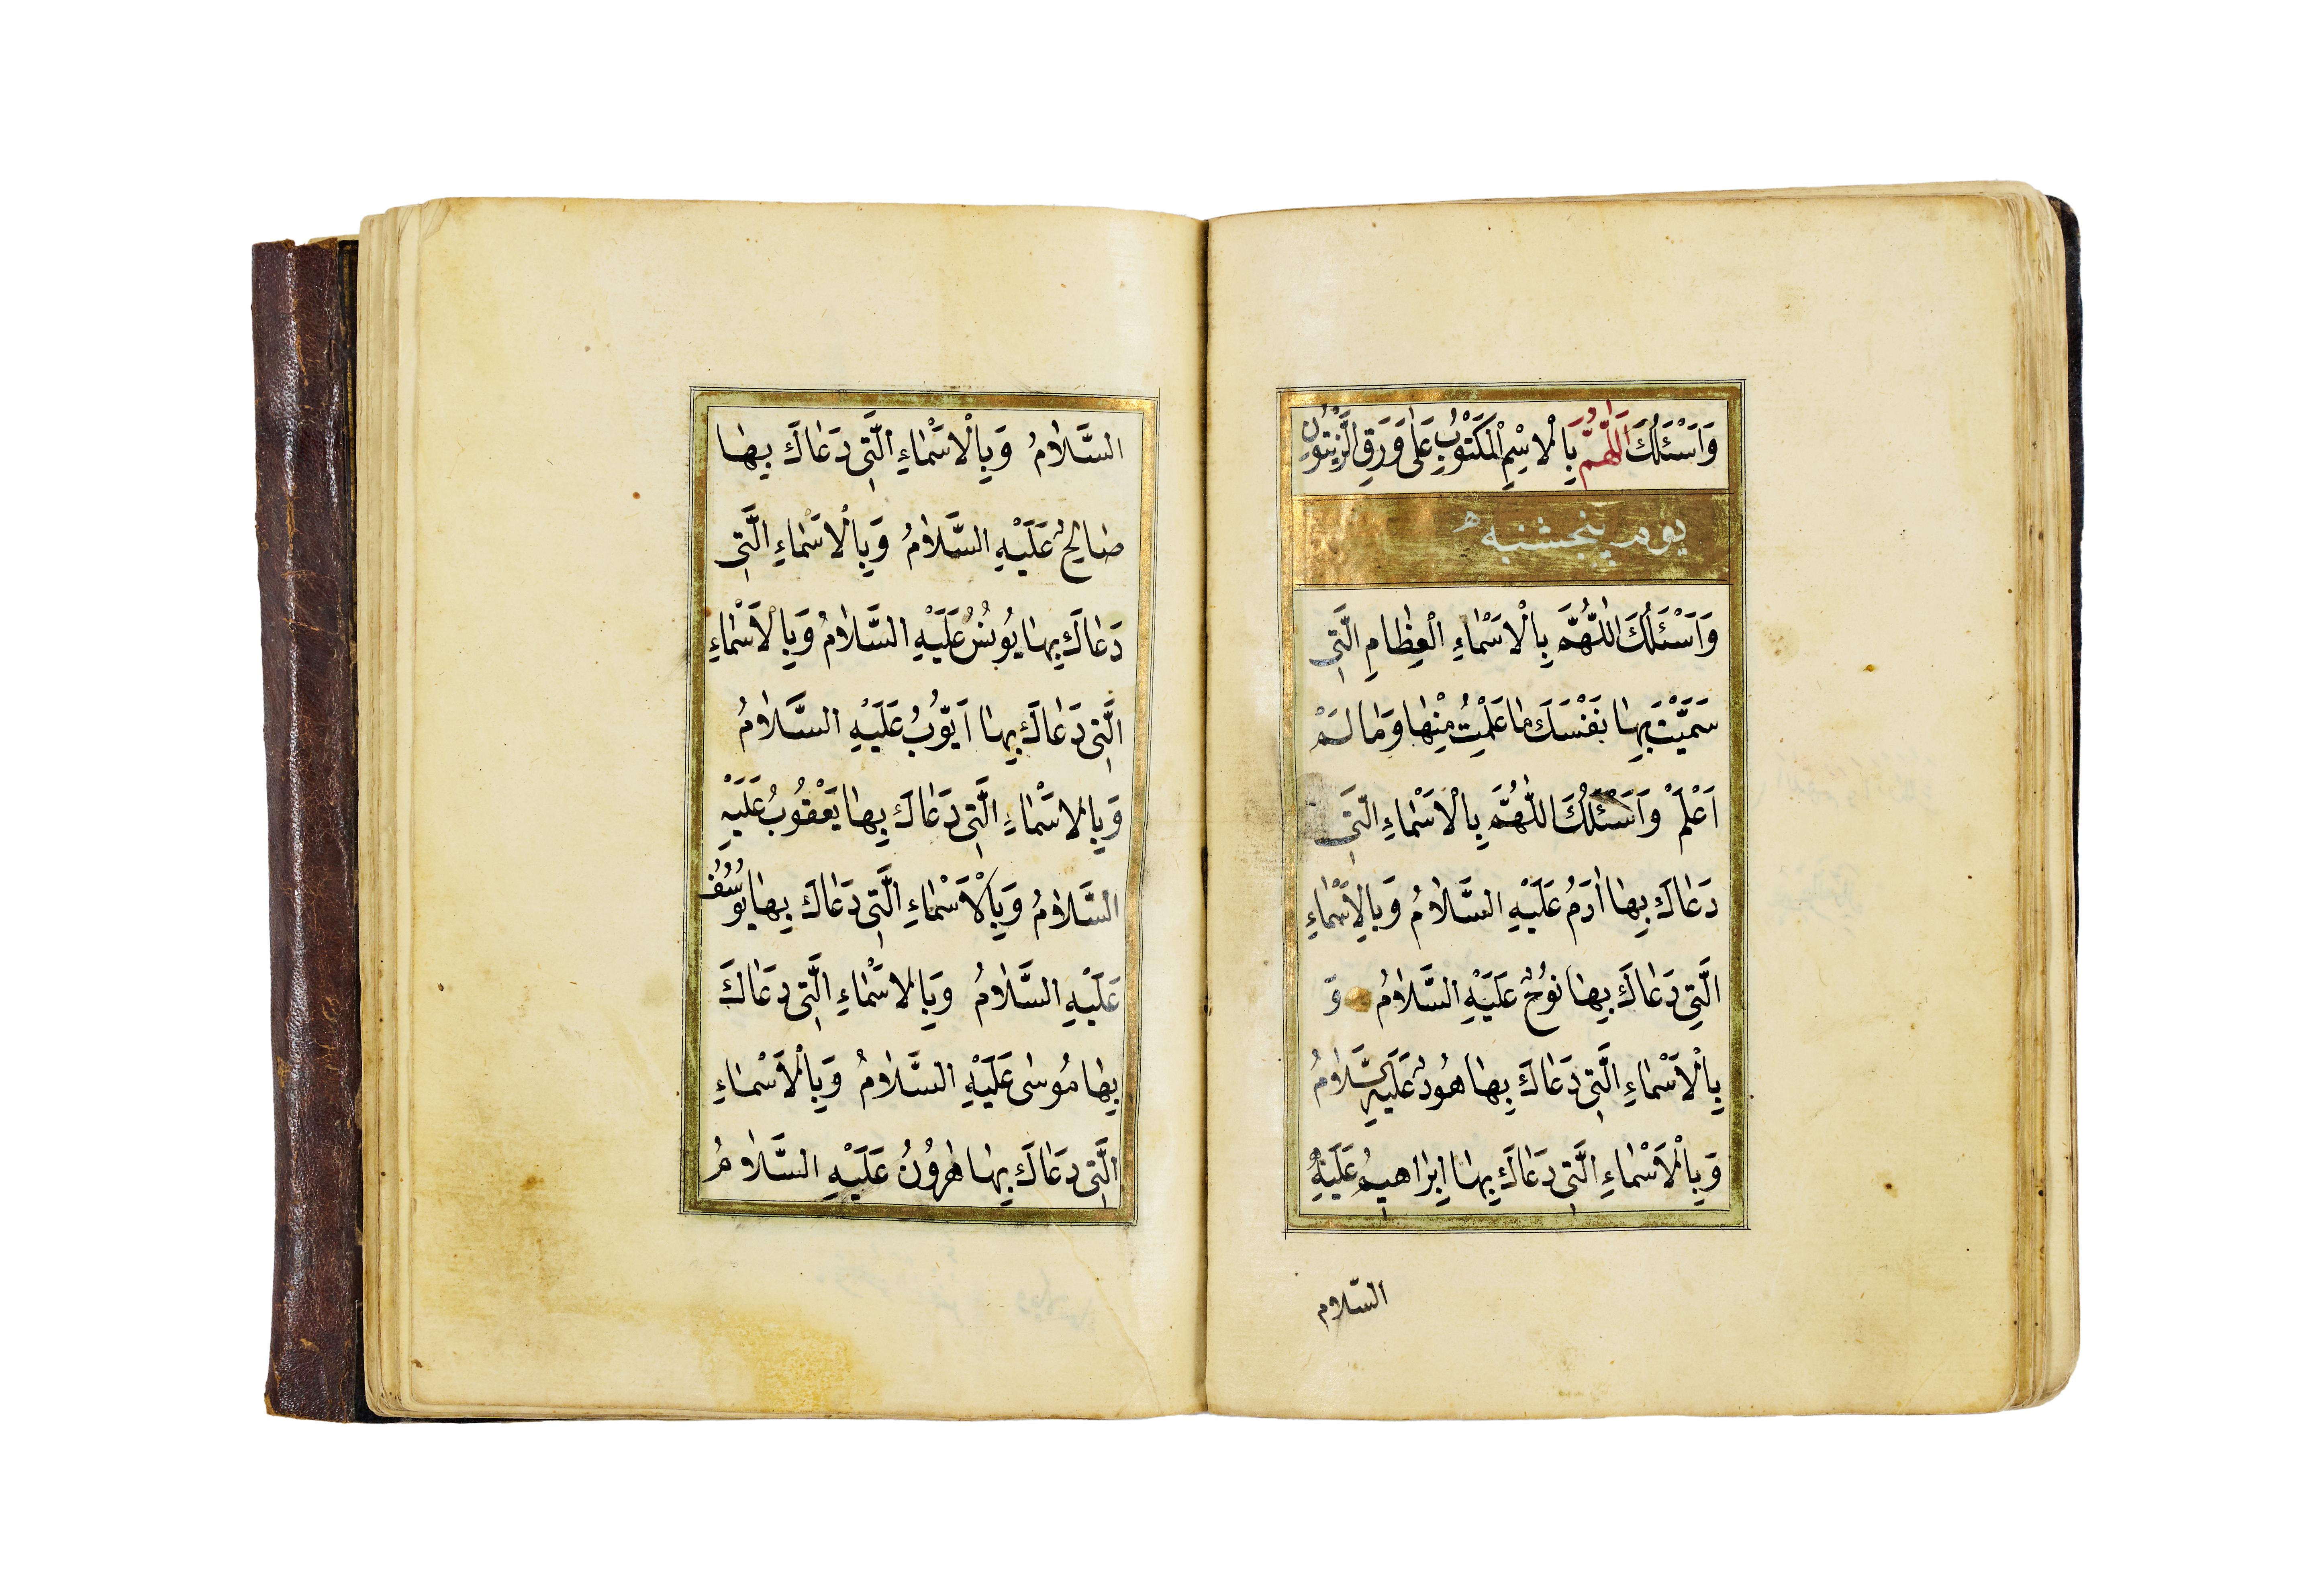 وَاَسْئَلُكَ اَللّٰهُمَّ بِالْاِسْمِ الْمَكْتُوْبِ عَلٰى وَرَقِ الزَّيْتُوْنِ
يوم پنجشنبه
وَاَسْئَلُكَ اللّٰهُمَّ بِالْاَسْمَاءِ الْعِظَامِ الَّتِى
سَمَّيْتَ بِهَا نَفْسَكَ مَا عَلِمْتُ مِنْهَا وَمَا لَمْ
اَعْلَمْ وَاَسْئَلُكَ اللّٰهُمَّ بِالْاَسْمَاءِ الَّتِى
دَعَاكَ بِهَا اٰدَمُ عَلَيْهِ السَّلَامُ وَبِالْاَسْمَاءِ
الَّتِي دَعَاكَ بِهَا نُوْحٌ عَلَيْهِ السَّلَامُ وَ
بِالْاَسْمَاءِ الَّتِى دَعَاكَ بِهَا هُودٌ عَلَيْهِ السَّلَامُ
وَبِالْاَسْمَاءِ الَّتِى دَعَاكَ بِهَا اِبْرَاهِيمُ عَلَيْهِ
السّلام
السَّلَامُ وَبِالْاَسْمَاءِ الَّتِى دَعَاكَ بِهَا
صَالِحٌ عَلَيْهِ السَّلَامُ وَبِالْاَسْمَاءِ الَّتِى
دَعَاكَ بِهَا يُونُسُ عَلَيْهِ السَّلَامُ وَبِالْاَسْمَاءِ
الَّتِى دَعَاكَ بِهَا اَيُّوْبُ عَلَيْهِ السَّلَامُ
وَبِالْاَسْمَاءِ الَّتِى دَعَاكَ بِهَا يَعْقُوْبُ عَلَيْهِ
السَّلَامُ وَبِالْاَسْمَاءِ الَّتِى دَعَاكَ بِهَا يُوسُفُ
عَلَيْهِ السَّلَامُ وَبِالْاَسْمَاءِ الَّتِى دَعَاكَ
بِهَا مُوسٰى عَلَيْهِ السَّلَامُ وَبِالْاَسْمَاءِ
الَّتِى دَعَاكَ بِهَا هٰرُوْنُ عَلَيْهِ السَّلَامُ